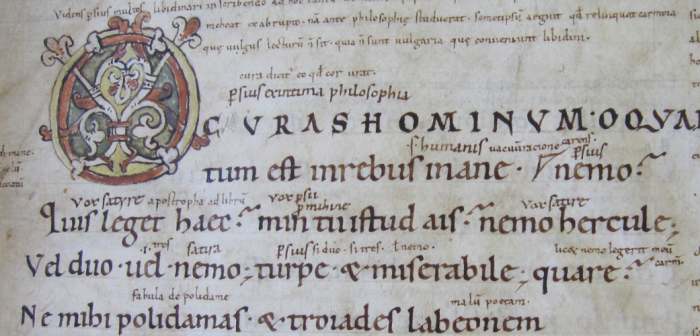 Videns psius multos libidinari in scribendo
meheat ex abrupto. nā ante philosophię studuerat. semetipsū arguit qđ relinquat carmina
quę uulgus lecturū ñ sit. quia ñ sunt uulgaria quę conueniunt libidini.
cura dicit eo qđ cor urat.
psius ex intima philosophia
O CVRAS HOMINVM·O QVAN
s. humanis uacuatione psius
tum est in rebus inane · nemo
vox satyre apostropha ad librū vox psii p mihi ne vox satyre
Quis leget haec. min tu istud ais. nemo hercule;
.i. tros satira psius si duo. si tres. t nemo. licæ nemo legerit meū carm.
Vel duo · uel · nemo; turpe · & miserabile; quare.
fabula de polidame malū poetam.
Ne mihi polidamas · & troiades labeonem